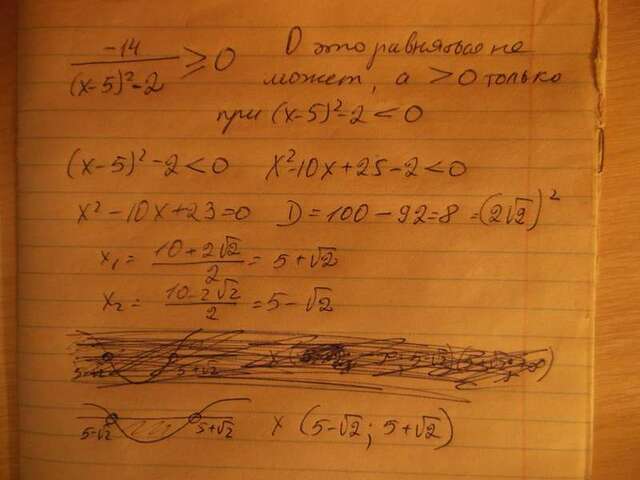 -14/((x-5)²-2) ≥ 0 0 это равняться не
может, а >0 только
при (x-5)²-2<0
(x-5)²-2<0 x²-10x+25-2<0
x²-10x+23=0 D=100-92=8=(2√2)²
x₁= (10+2√2)/2 = 5+√2
x₂= (10-2√2)/2 = 5-√2
5-√2 5+√2
5-√2 5+√2 x (5-√2; 5+√2)